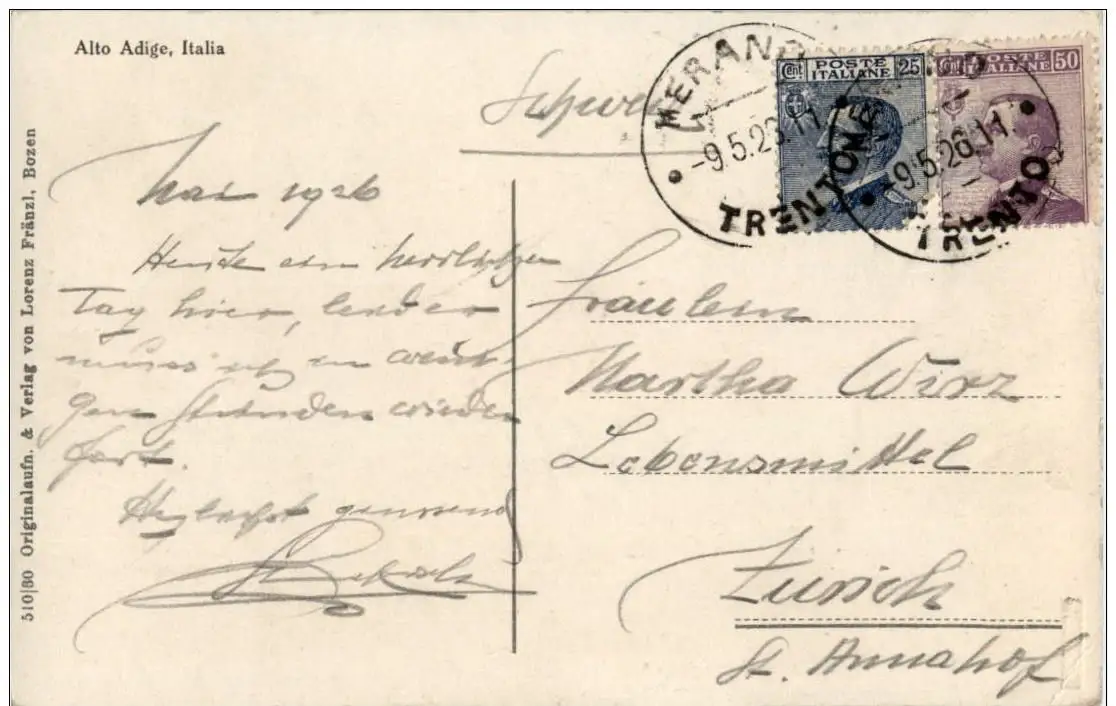 Alto Adige, Italia
510|80 Originalaufn. & Verlag von Lorenz Fränzl, Bozen
MERANO
-9.5.26.11
TRENTO
Cent POSTE ITALIANE 25
MERANO
-9.5.26.11.
TRENTO
Cent POSTE ITALIANE 50
Schweiz
Mai 1926
Heute ein herrlicher
Tag hier, leider
muss ich in weni-
gen Stunden wieder
fort.
Herzlichst grüssend
Fräulein
Martha Wirz
Lebensmittel
Zürich
St. Annahof